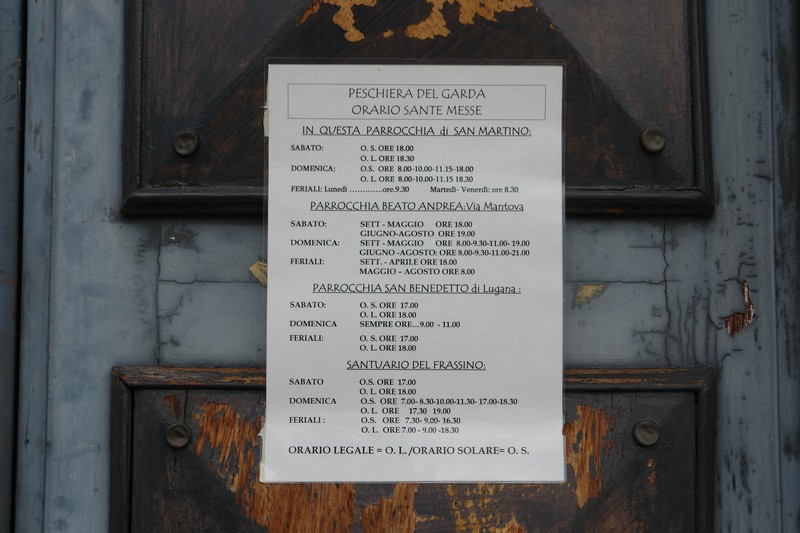 PESCHIERA DEL GARDA
ORARIO SANTE MESSE
IN QUESTA PARROCCHIA di SAN MARTINO:
SABATO: O. S. ORE 18.00
O. L. ORE 18.30
DOMENICA: O.S. ORE 8.00-10.00-11.15-18.00
O. L. ORE 8.00-10.00-11.15 18.30
FERIALI: Lunedì .............ore.9.30 Martedì- Venerdì: ore 8.30
PARROCCHIA BEATO ANDREA:Via Mantova
SABATO: SETT - MAGGIO ORE 18.00
GIUGNO-AGOSTO ORE 19.00
DOMENICA: SETT - MAGGIO ORE 8.00-9.30-11.00- 19.00
GIUGNO -AGOSTO: ORE 8.00-9.30-11.00-21.00
FERIALI: SETT. - APRILE ORE 18.00
MAGGIO – AGOSTO ORE 8.00
PARROCCHIA SAN BENEDETTO di Lugana :
SABATO: O. S. ORE 17.00
O. L. ORE 18.00
DOMENICA SEMPRE ORE...9.00 - 11.00
FERIALI: O. S. ORE 17.00
O. L. ORE 18.00
SANTUARIO DEL FRASSINO:
SABATO O.S. ORE 17.00
O. L. ORE 18.00
DOMENICA O.S. ORE 7.00- 8.30-10.00-11.30- 17.00-18.30
O. L. ORE 17.30 19.00
FERIALI : O.S. ORE 7.30- 9.00- 16.30
O. L. ORE 7.00 - 9.00 -18.30
ORARIO LEGALE = O. L. /ORARIO SOLARE= O. S.